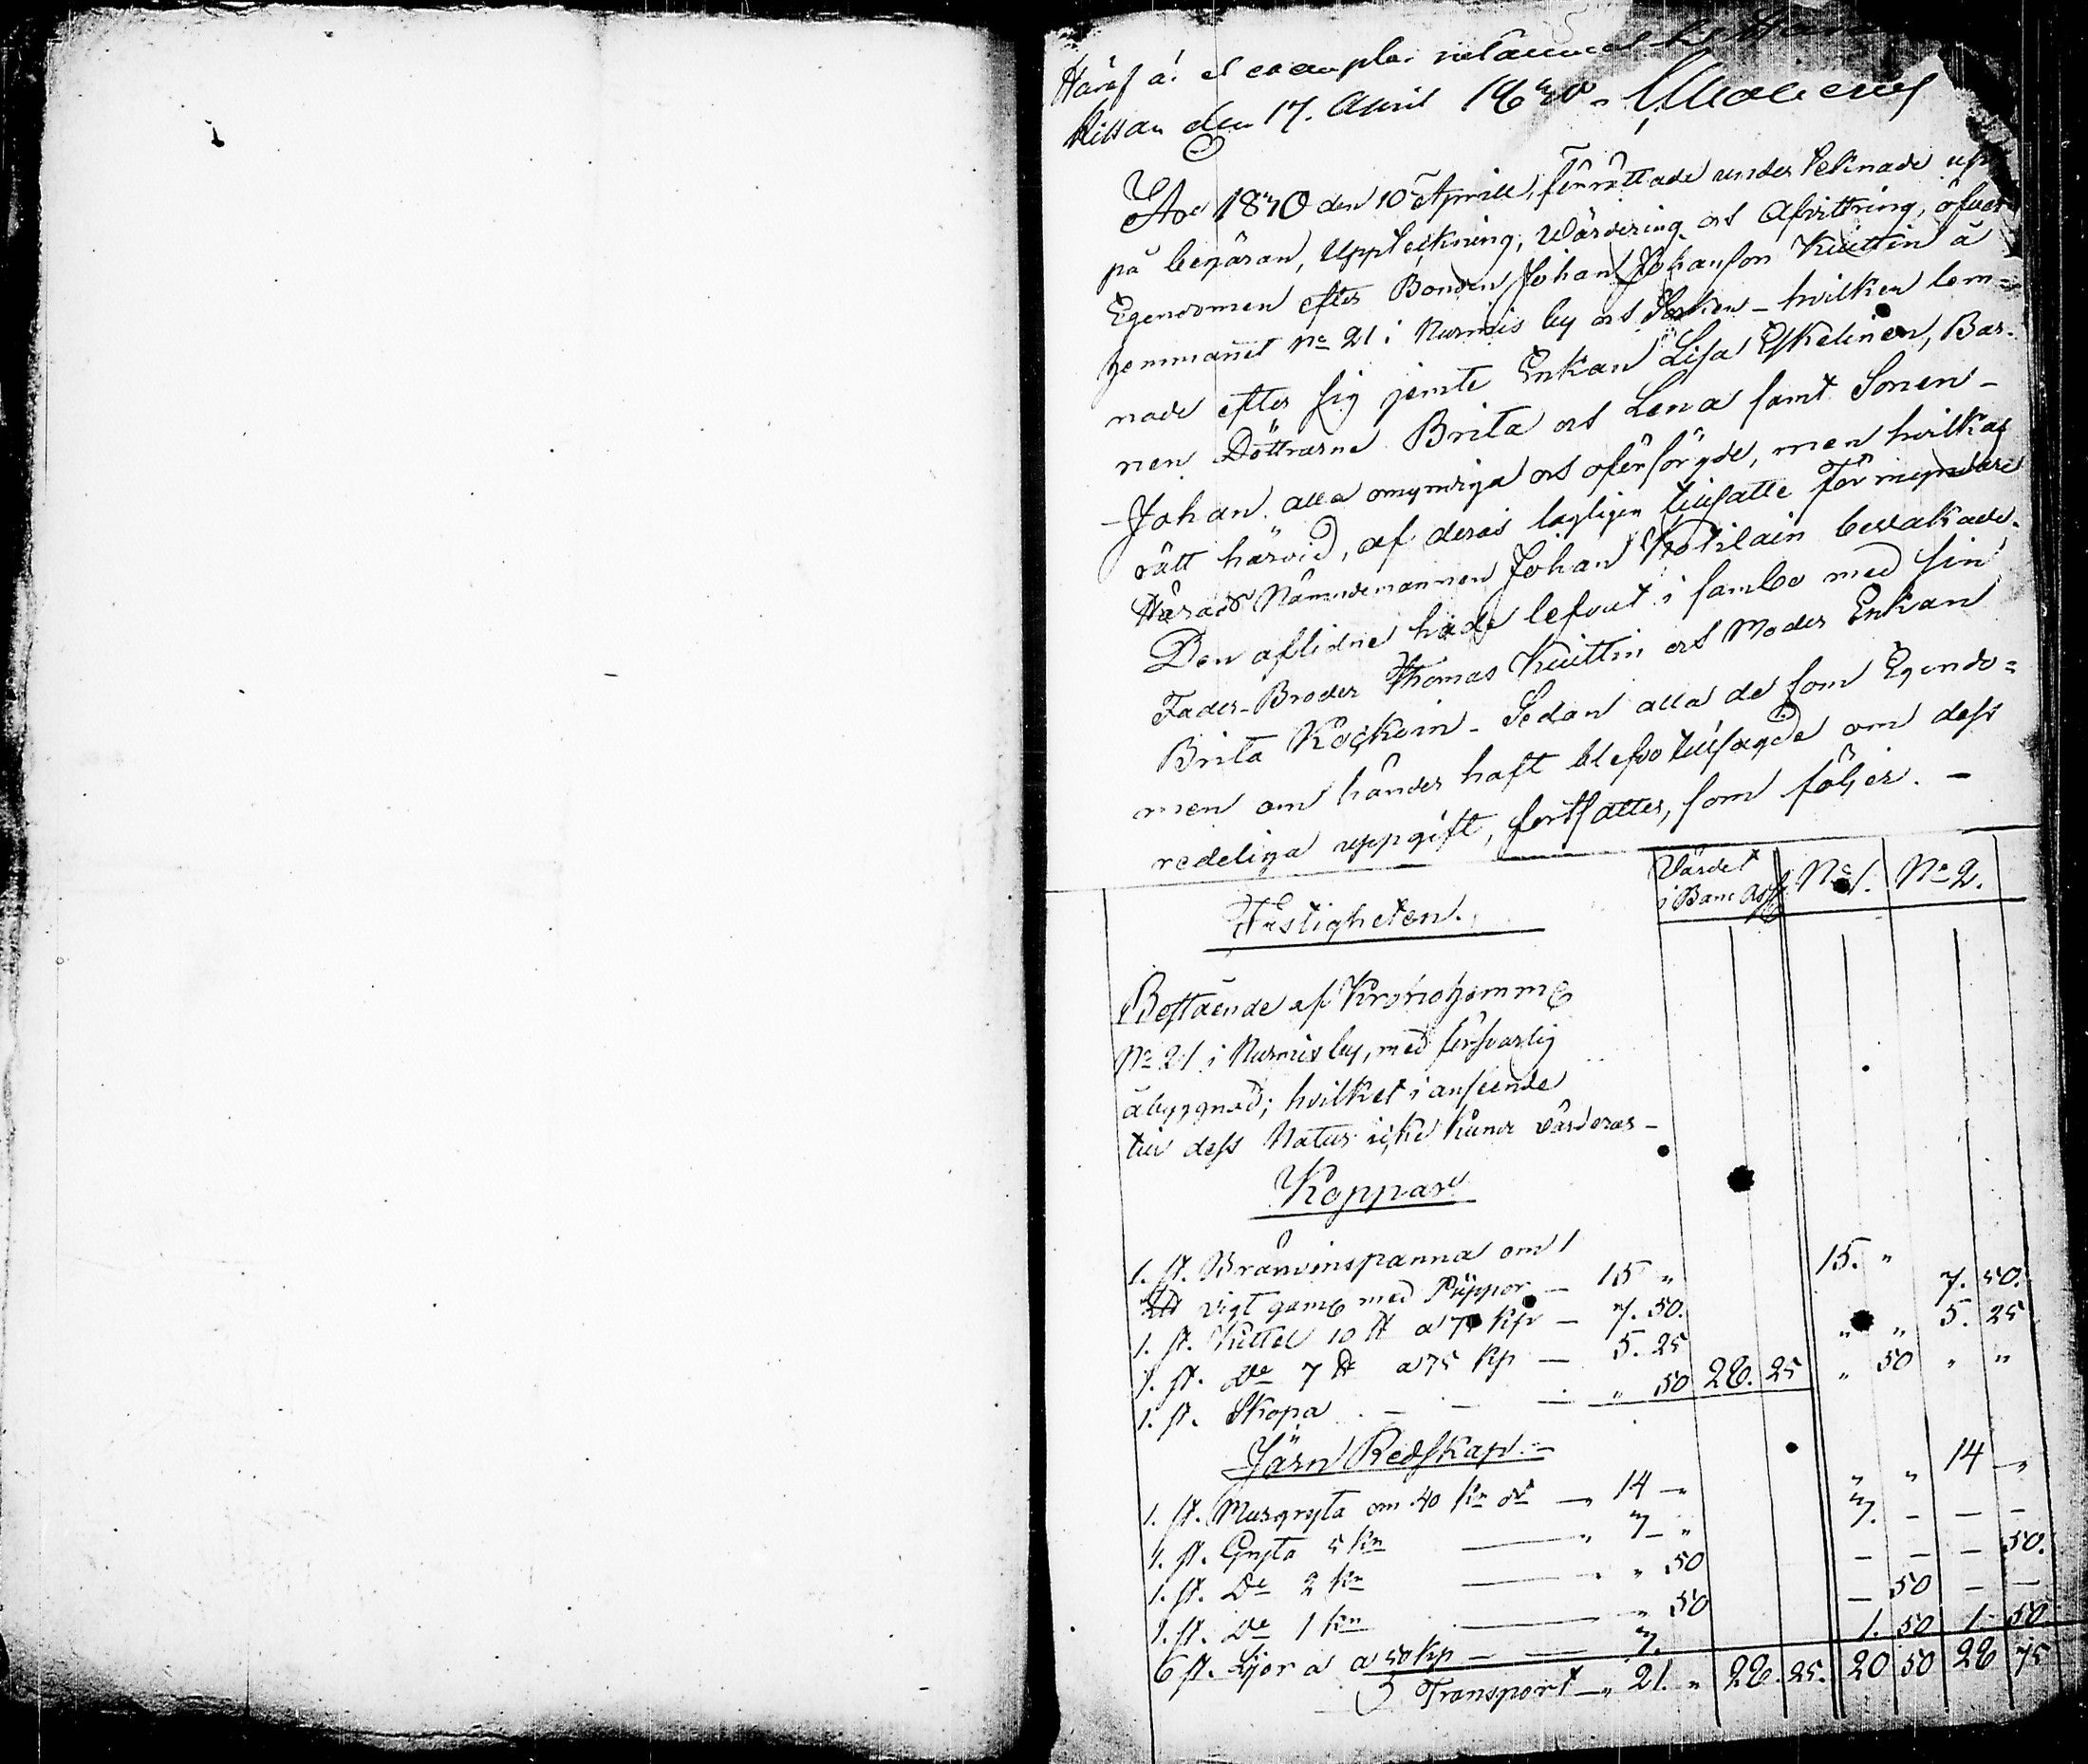 Häraf är et exemplar inlämnat till
Kittan den 17. April 1840.
Åhr 1840 den 10 Aprill, förrättade undertecknade upp
på begäran, Upptekning, Wärdering och Afvittring, öfver
Egendomen efter Bonden Johan Johansson Kuittin å
hemmanet No 21 i Nurmis by och Socken – hvilken lem-
nade efter sig jemte Enkan Lisa Eskelinen, Bar-
nen Döttrarne Brita och Lena samt Sonen –
Johan alla omyndiga och oförsörgde, men hvilkas
rätt härvid, af deras lagligen tillsatte Förmyndare
Härads Nämndemannen Johan Kotilain bevakade.
Den aflidne hade lefvat i sambo med sin
Fader-Broder Thomas Kuittin och Moder Enkan
Brita Kockoin – Sedan alla de som Egendo=
men om händer haft blefvo tillsagde om dess
redeliga uppgift, fortsattes, som följer. –
Värdet
i Banc Ass
No 1. No 2.
Fastigheten.
Bestående af Kronohemm
No 21 i Nurmis by, med försvarlig
åbyggnad; hvilket i anseende
till dess Natur icke kunde värderas –
Koppar
1. st. Bränvinspanna om 1
vigt gaml med Pippor – 15 „ 15. „
1. st. Kittel 10 ℔ a 75 kp – 7. 50. 7. 50.
1. st. Do 7 ℔ a 75 kp – 5. 25 „ „ 5. 25
1. st. Skopa . – – – „ 50 28. 25 „ 50 „ „
Järn Redskap. –
1. st. Murgryta om 40 kr – „ 14 – „ „ „ 14 – „
1. st. Gryta 5 kn – „ 7 – „ 7. – – –
1. st. Do 2 kn – . „ 50 – – – 50.
1. st. Do 1 kn – „ 50 – 50 – –
6 st. Lijor a a 50 kp – – 7. 1. 50 1. 50
Transport – „ 21. „ 28. 25. 20 50 28 75